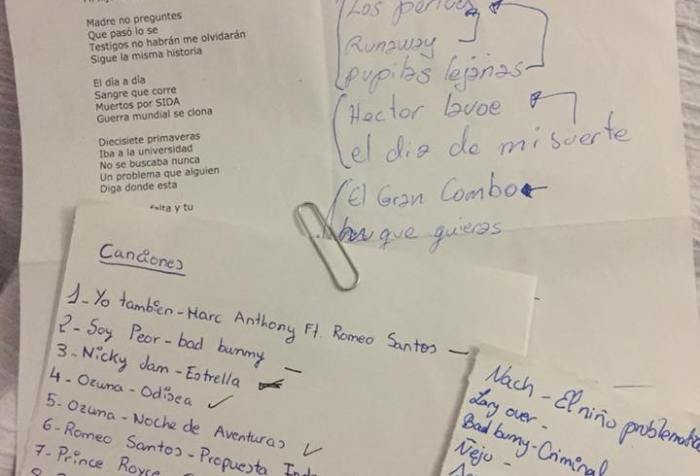 Madre no preguntes
Que pasó lo se
Testigos no habrán me olvidarán
Sigue la misma historia
El dia a dia
Sangre que corre
Muertos por SIDA
Guerra mundial se clona
Diecisiete primaveras
Iba a la universidad
No se buscaba nunca
Un problema que alguien
Diga donde esta
y tu
Los pericos
Runaway
pupilas lejanas
Hector lavoe
el dia de mi suerte
El Gran Combo
que quieras
Canciones
1- Yo tambien - Marc Anthony Ft. Romeo Santos
2- Soy Peor - bad bunny
3- Nicky Jam - Estrella
4- Ozuna - Odisea
5- Ozuna - Noche de Aventuras
6- Romeo Santos - Propuesta Inde
7- Prince Royce
Nach - El niño problematic
Lary over -
Bad buny - Criminal
Ñejo